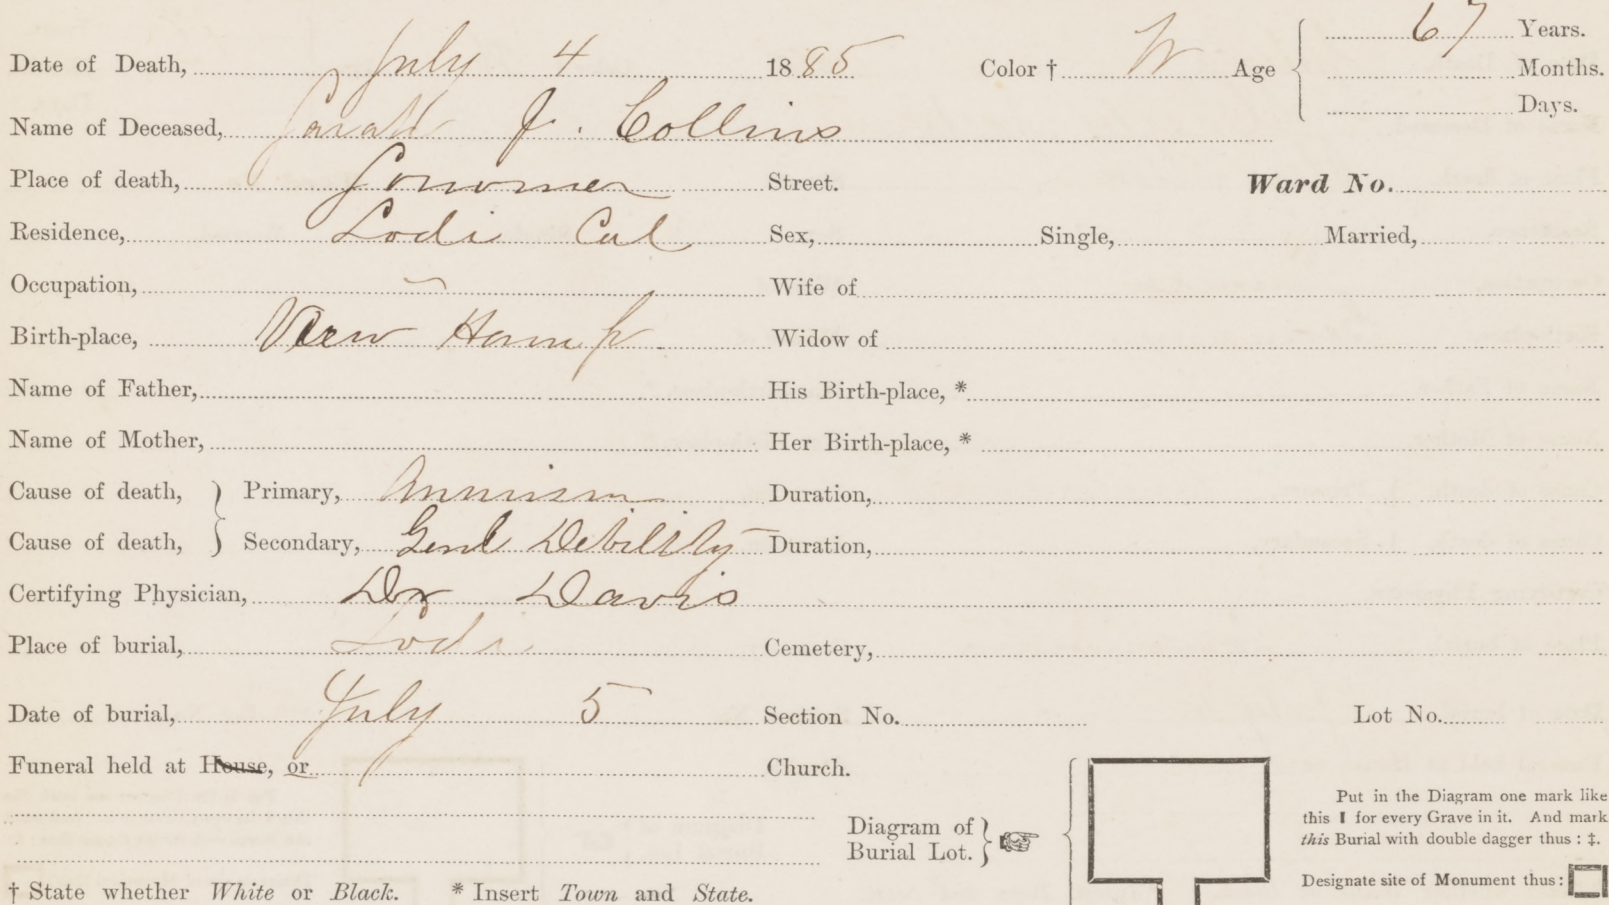 67 Years.
Date of Death, July 4 1885 Color † W Age Months.
Days.
Name of Deceased, Sarah J. Collins
Place of death, Street. Ward No.
Residence, Lodi Cal Sex, Single, Married,
Occupation, Wife of
Birth-place, New Hamp Widow of
Name of Father, His Birth-place, *
Name of Mother, Her Birth-place, *
Cause of death, Primary, Duration,
Cause of death, Secondary, Genl Debility Duration,
Certifying Physician, Dr Davis
Place of burial, Lodi Cemetery,
Date of burial, July 5 Section No. Lot No.
Funeral held at House, or Church.
Put in the Diagram one mark like
this I for every Grave in it. And mark
this Burial with double dagger thus: ‡.
Diagram of
Burial Lot.
Designate site of Monument thus:
† State whether White or Black. * Insert Town and State.